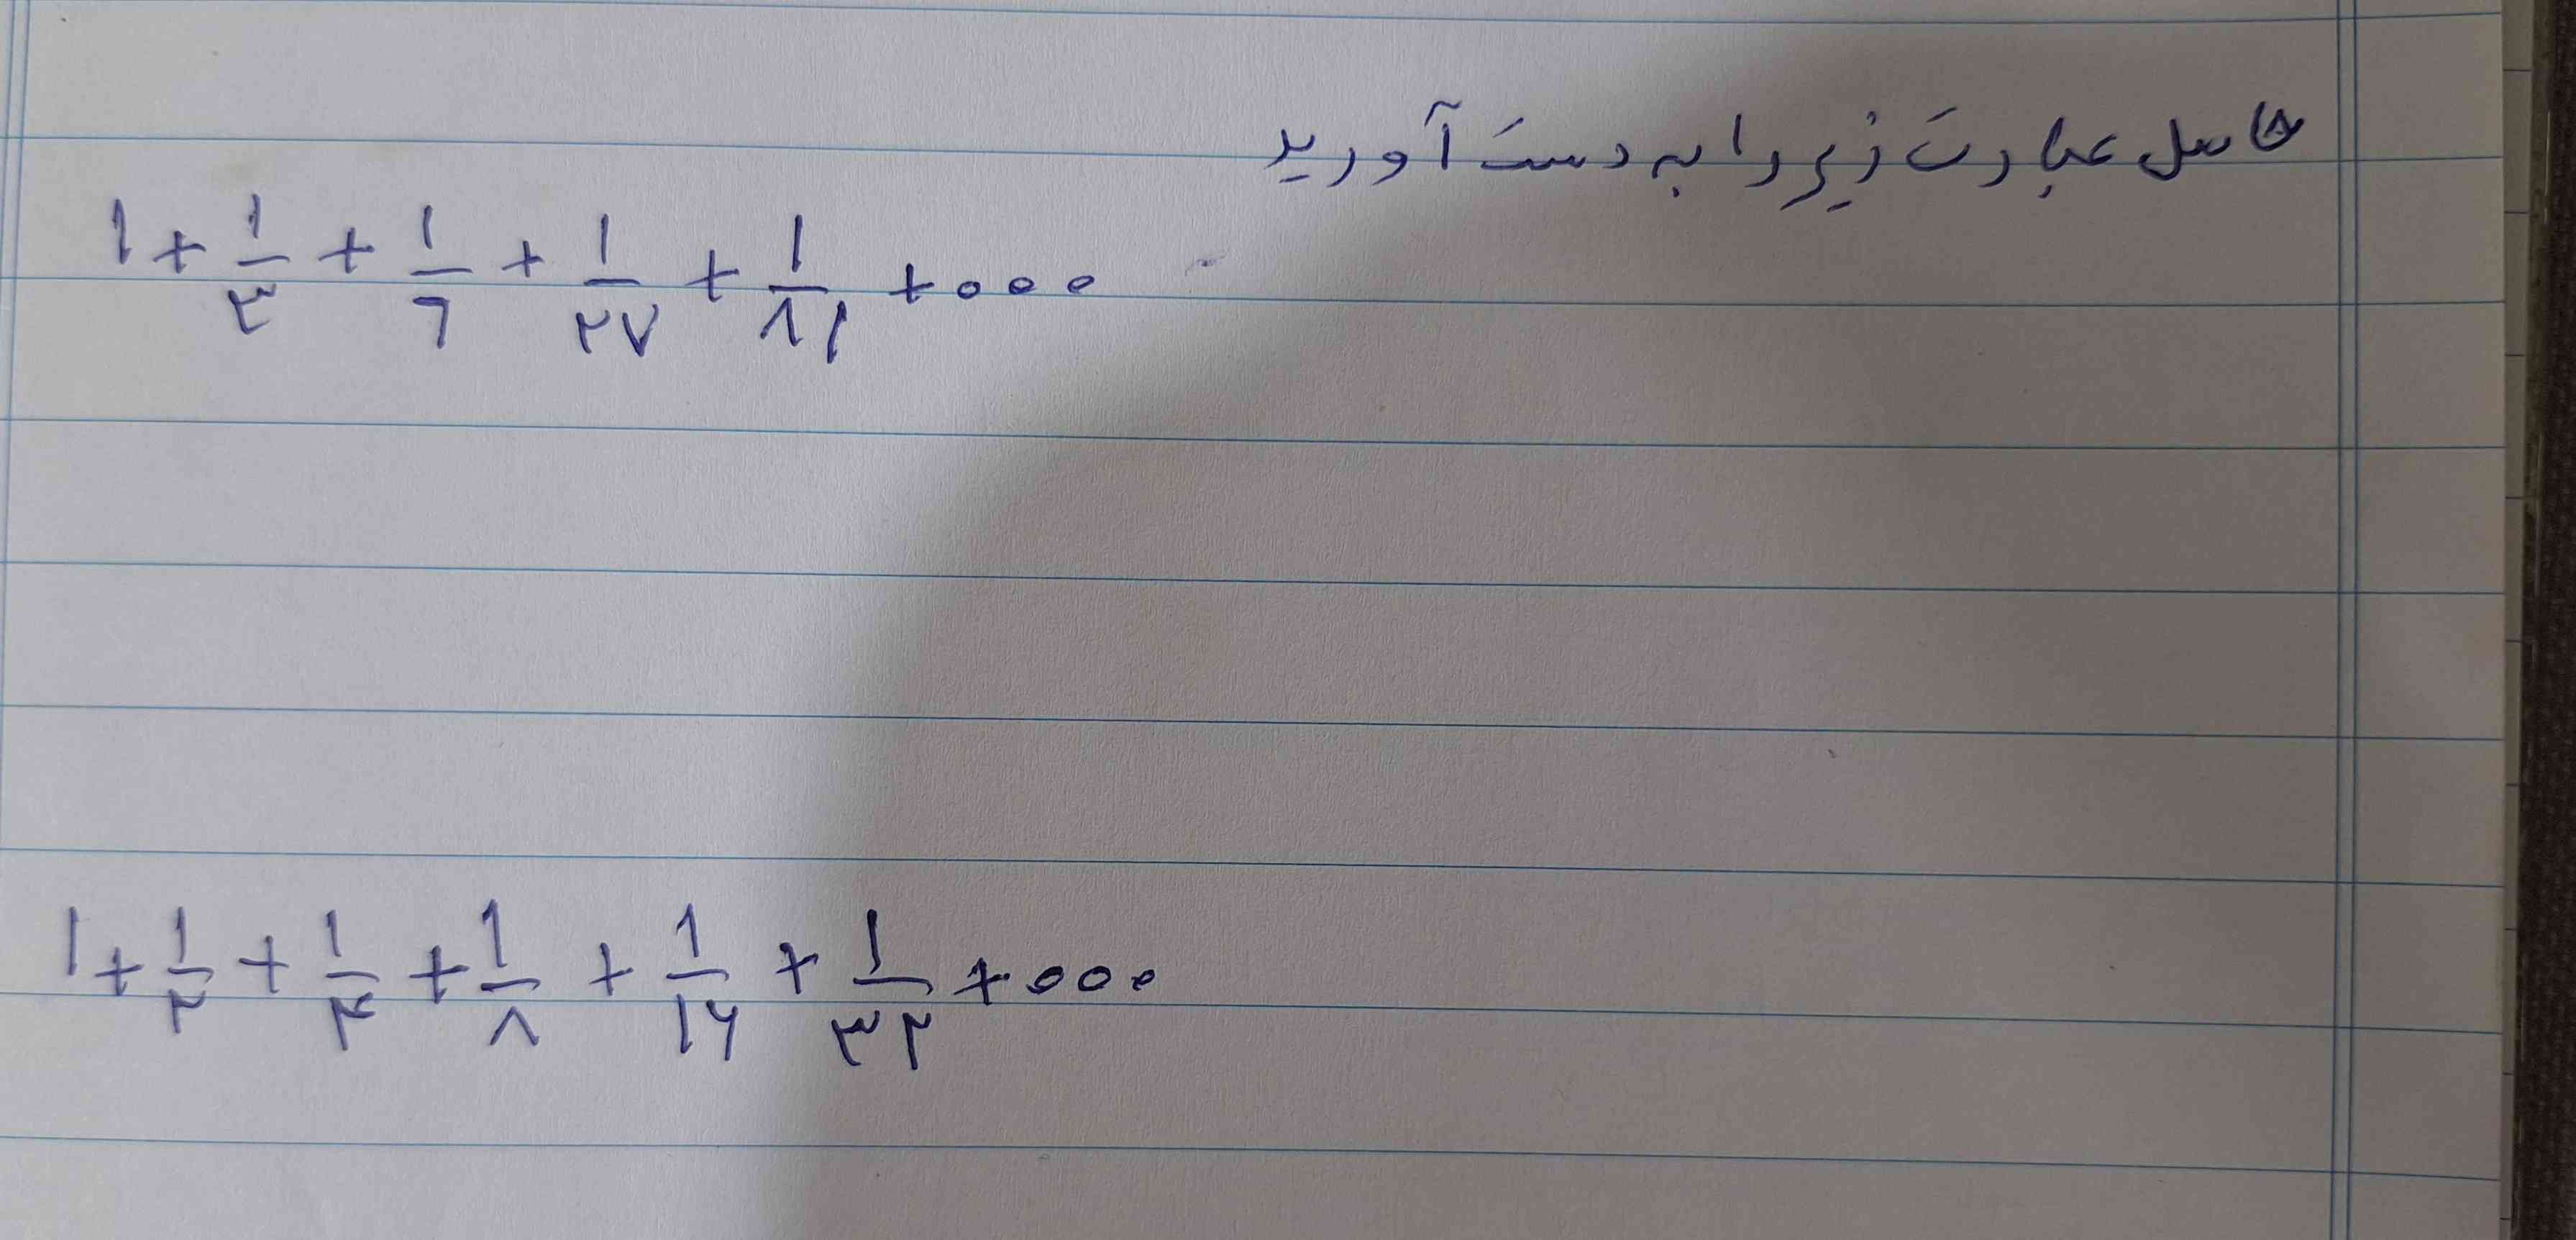 حاصل عبارت زیر را به دست آورید
۱ + ۱/۳ + ۱/۶ + ۱/۲۷ + ۱/۸۱ + ...
۱ + ۱/۲ + ۱/۴ + ۱/۸ + ۱/۱۶ + ۱/۳۲ + ...